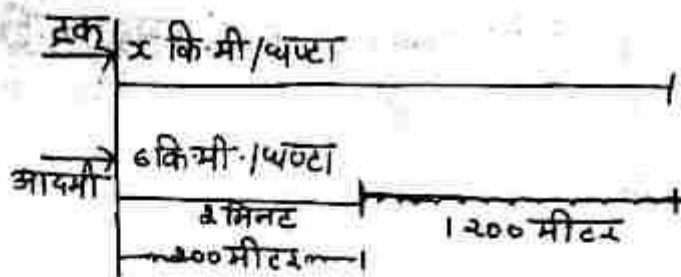 ट्रक
x कि.मी/घण्टा
आदमी
6 कि.मी./घण्टा
2 मिनट
1200 मीटर
200 मीटर